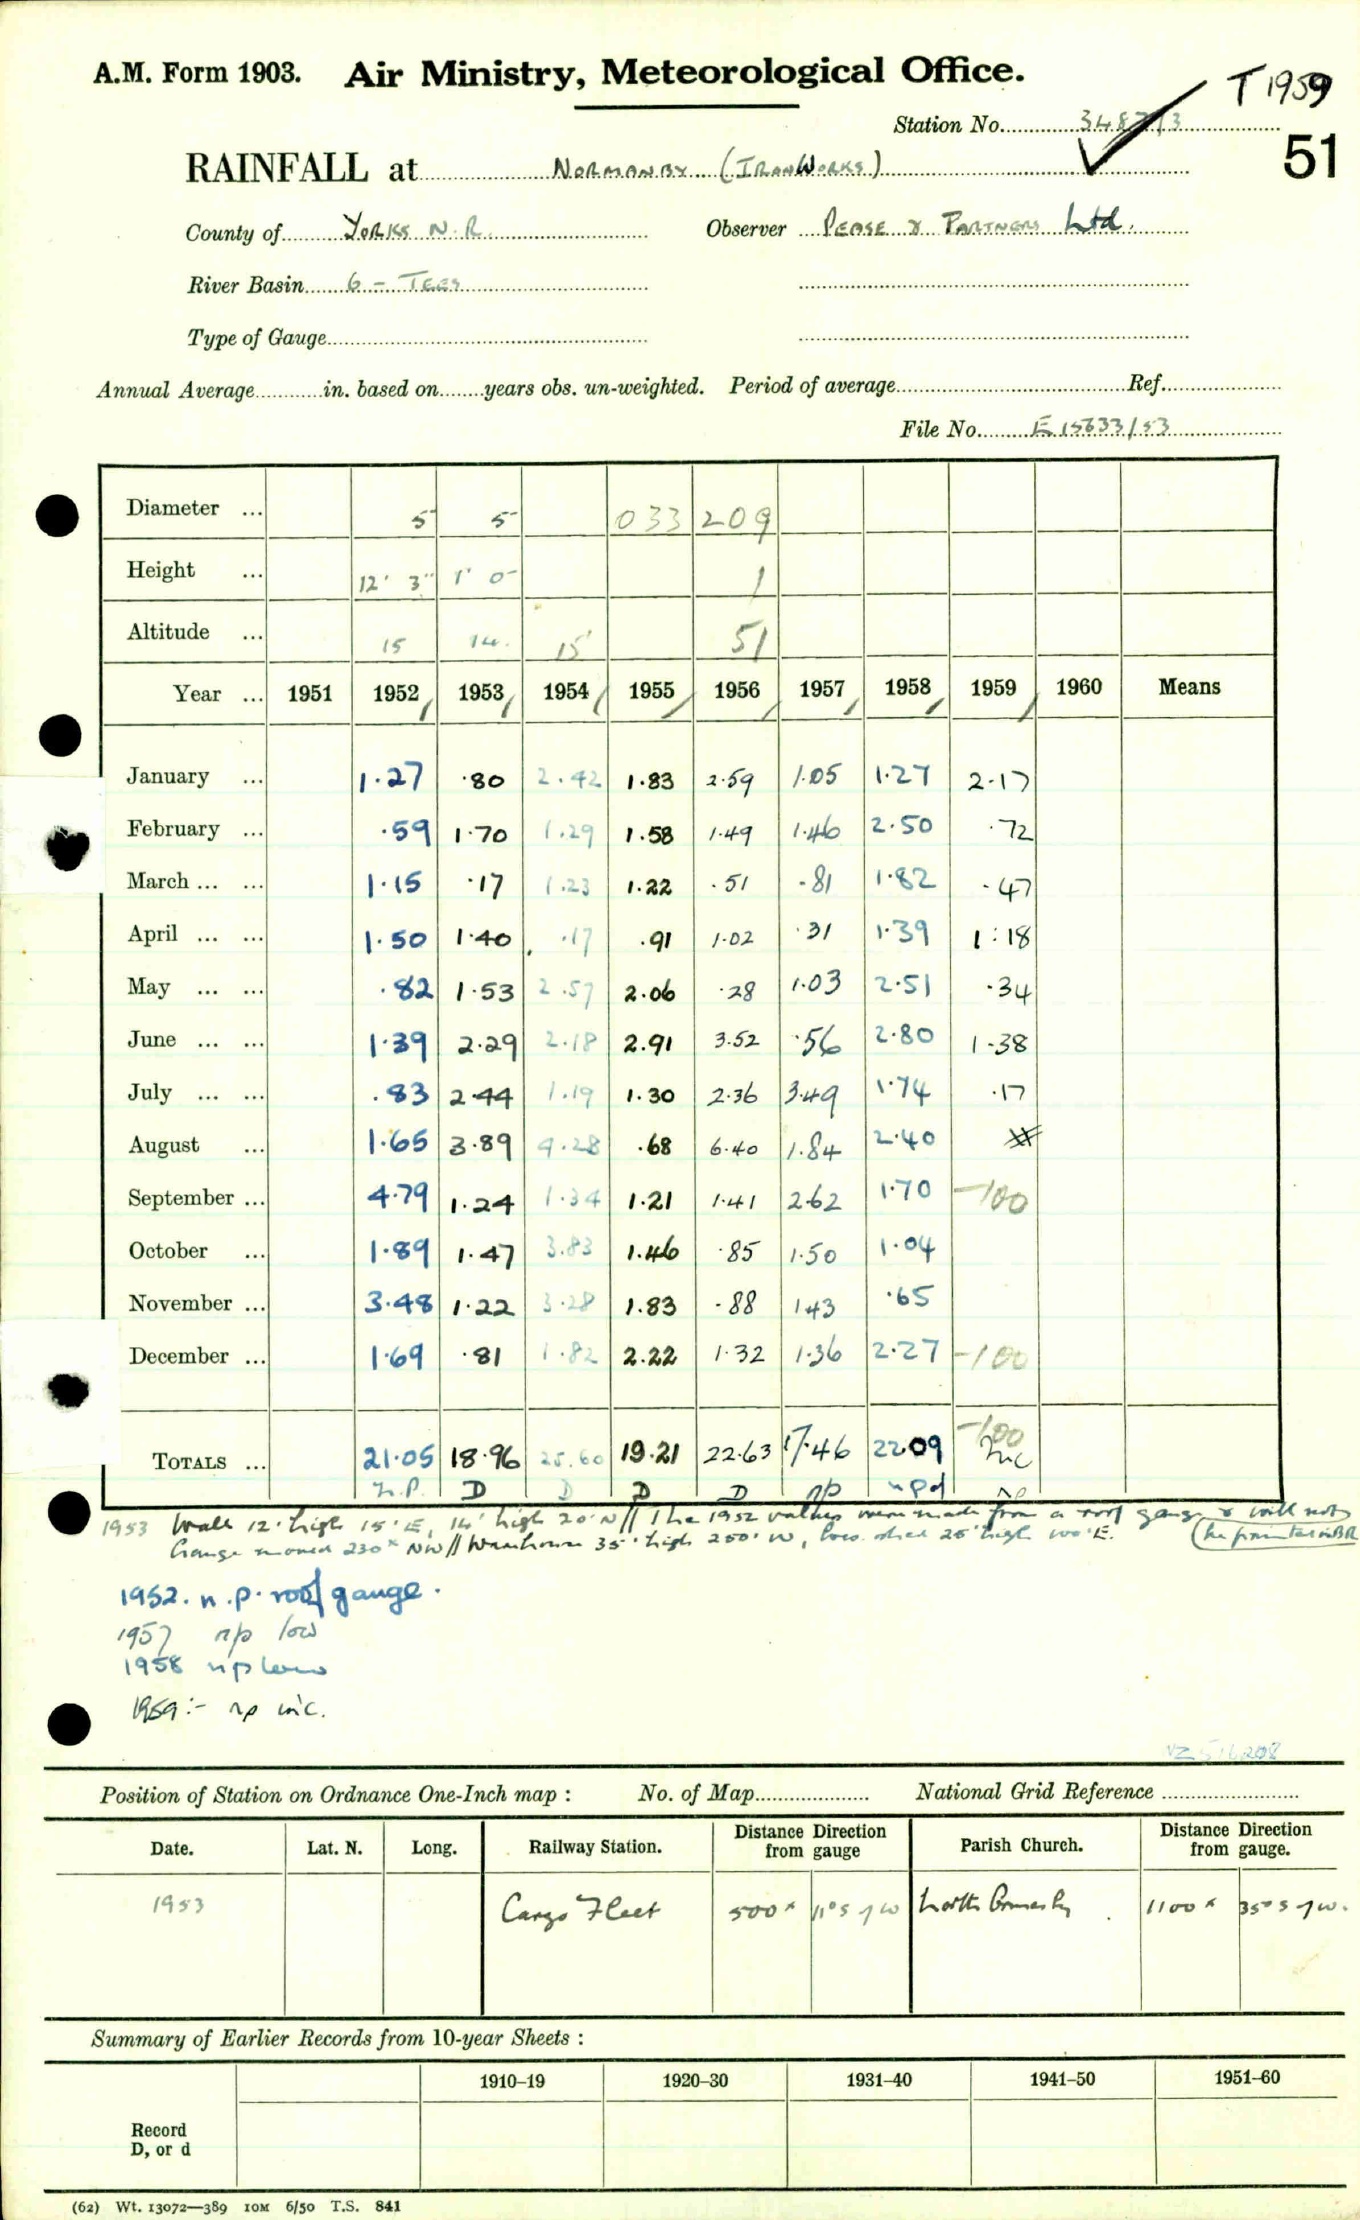 A.M. Form 1903. Air Ministry, Meteorological Office.
T 1959
Station No. 3482/3
51
RAINFALL at NORMANBY (IRONWORKS)
County of YORKS N.R. Observer PEASE & PARTNERS Ltd.
River Basin 6 - TEES
Type of Gauge
Annual Average in. based on years obs. un-weighted. Period of average Ref.
File No. E 15633/53
Diameter ... 5 5 033 209
Height ... 12' 3" 1' 0" 1
Altitude ... 15 14 15 51
Year ... 1951 1952 1953 1954 1955 1956 1957 1958 1959 1960 Means
January ... 1.27 .80 2.42 1.83 2.59 1.05 1.27 2.17
February ... .59 1.70 1.29 1.58 1.49 1.46 2.50 .72
March ... ... 1.15 .17 1.23 1.22 .51 .81 1.82 .47
April ... ... 1.50 1.40 .17 .91 1.02 .31 1.39 1.18
May ... ... .82 1.53 2.57 2.06 .28 1.03 2.51 .34
June ... ... 1.39 2.29 2.18 2.91 3.52 .56 2.80 1.38
July ... ... .83 2.44 1.19 1.30 2.36 3.49 1.74 .17
August ... 1.65 3.89 4.28 .68 6.40 1.84 2.40
September ... 4.79 1.24 1.34 1.21 1.41 2.62 1.70 -100
October ... 1.89 1.47 3.83 1.46 .85 1.50 1.04
November ... 3.48 1.22 3.28 1.83 .88 1.43 .65
December ... 1.69 .81 1.82 2.22 1.32 1.36 2.27 -100
-100
TOTALS ... 21.05 18.96 25.60 19.21 22.63 17.46 22.09 inc
n.p. D D D D np npd np
1953 Wall 12' high 15' E, 14' high 20' N // The 1952 values were made from a roof gauge & will not be printed in BR
Gauge moved 230x NW // Warehouse 35' high 250' W, loco. shed 25' high 100' E.
1952. n.p. roof gauge.
1957 np low
1958 np low
1959:- np inc.
NZ 516208
Position of Station on Ordnance One-Inch map : No. of Map National Grid Reference
Date. Lat. N. Long. Railway Station. Distance Direction from gauge Parish Church. Distance Direction from gauge.
1953 Cargo Fleet 500x 11° S of W North Ormesby 1100x 35° S of W.
Summary of Earlier Records from 10-year Sheets :
1910–19 1920–30 1931–40 1941–50 1951–60
Record
D, or d
(62) Wt. 13072—389 10M 6/50 T.S. 841